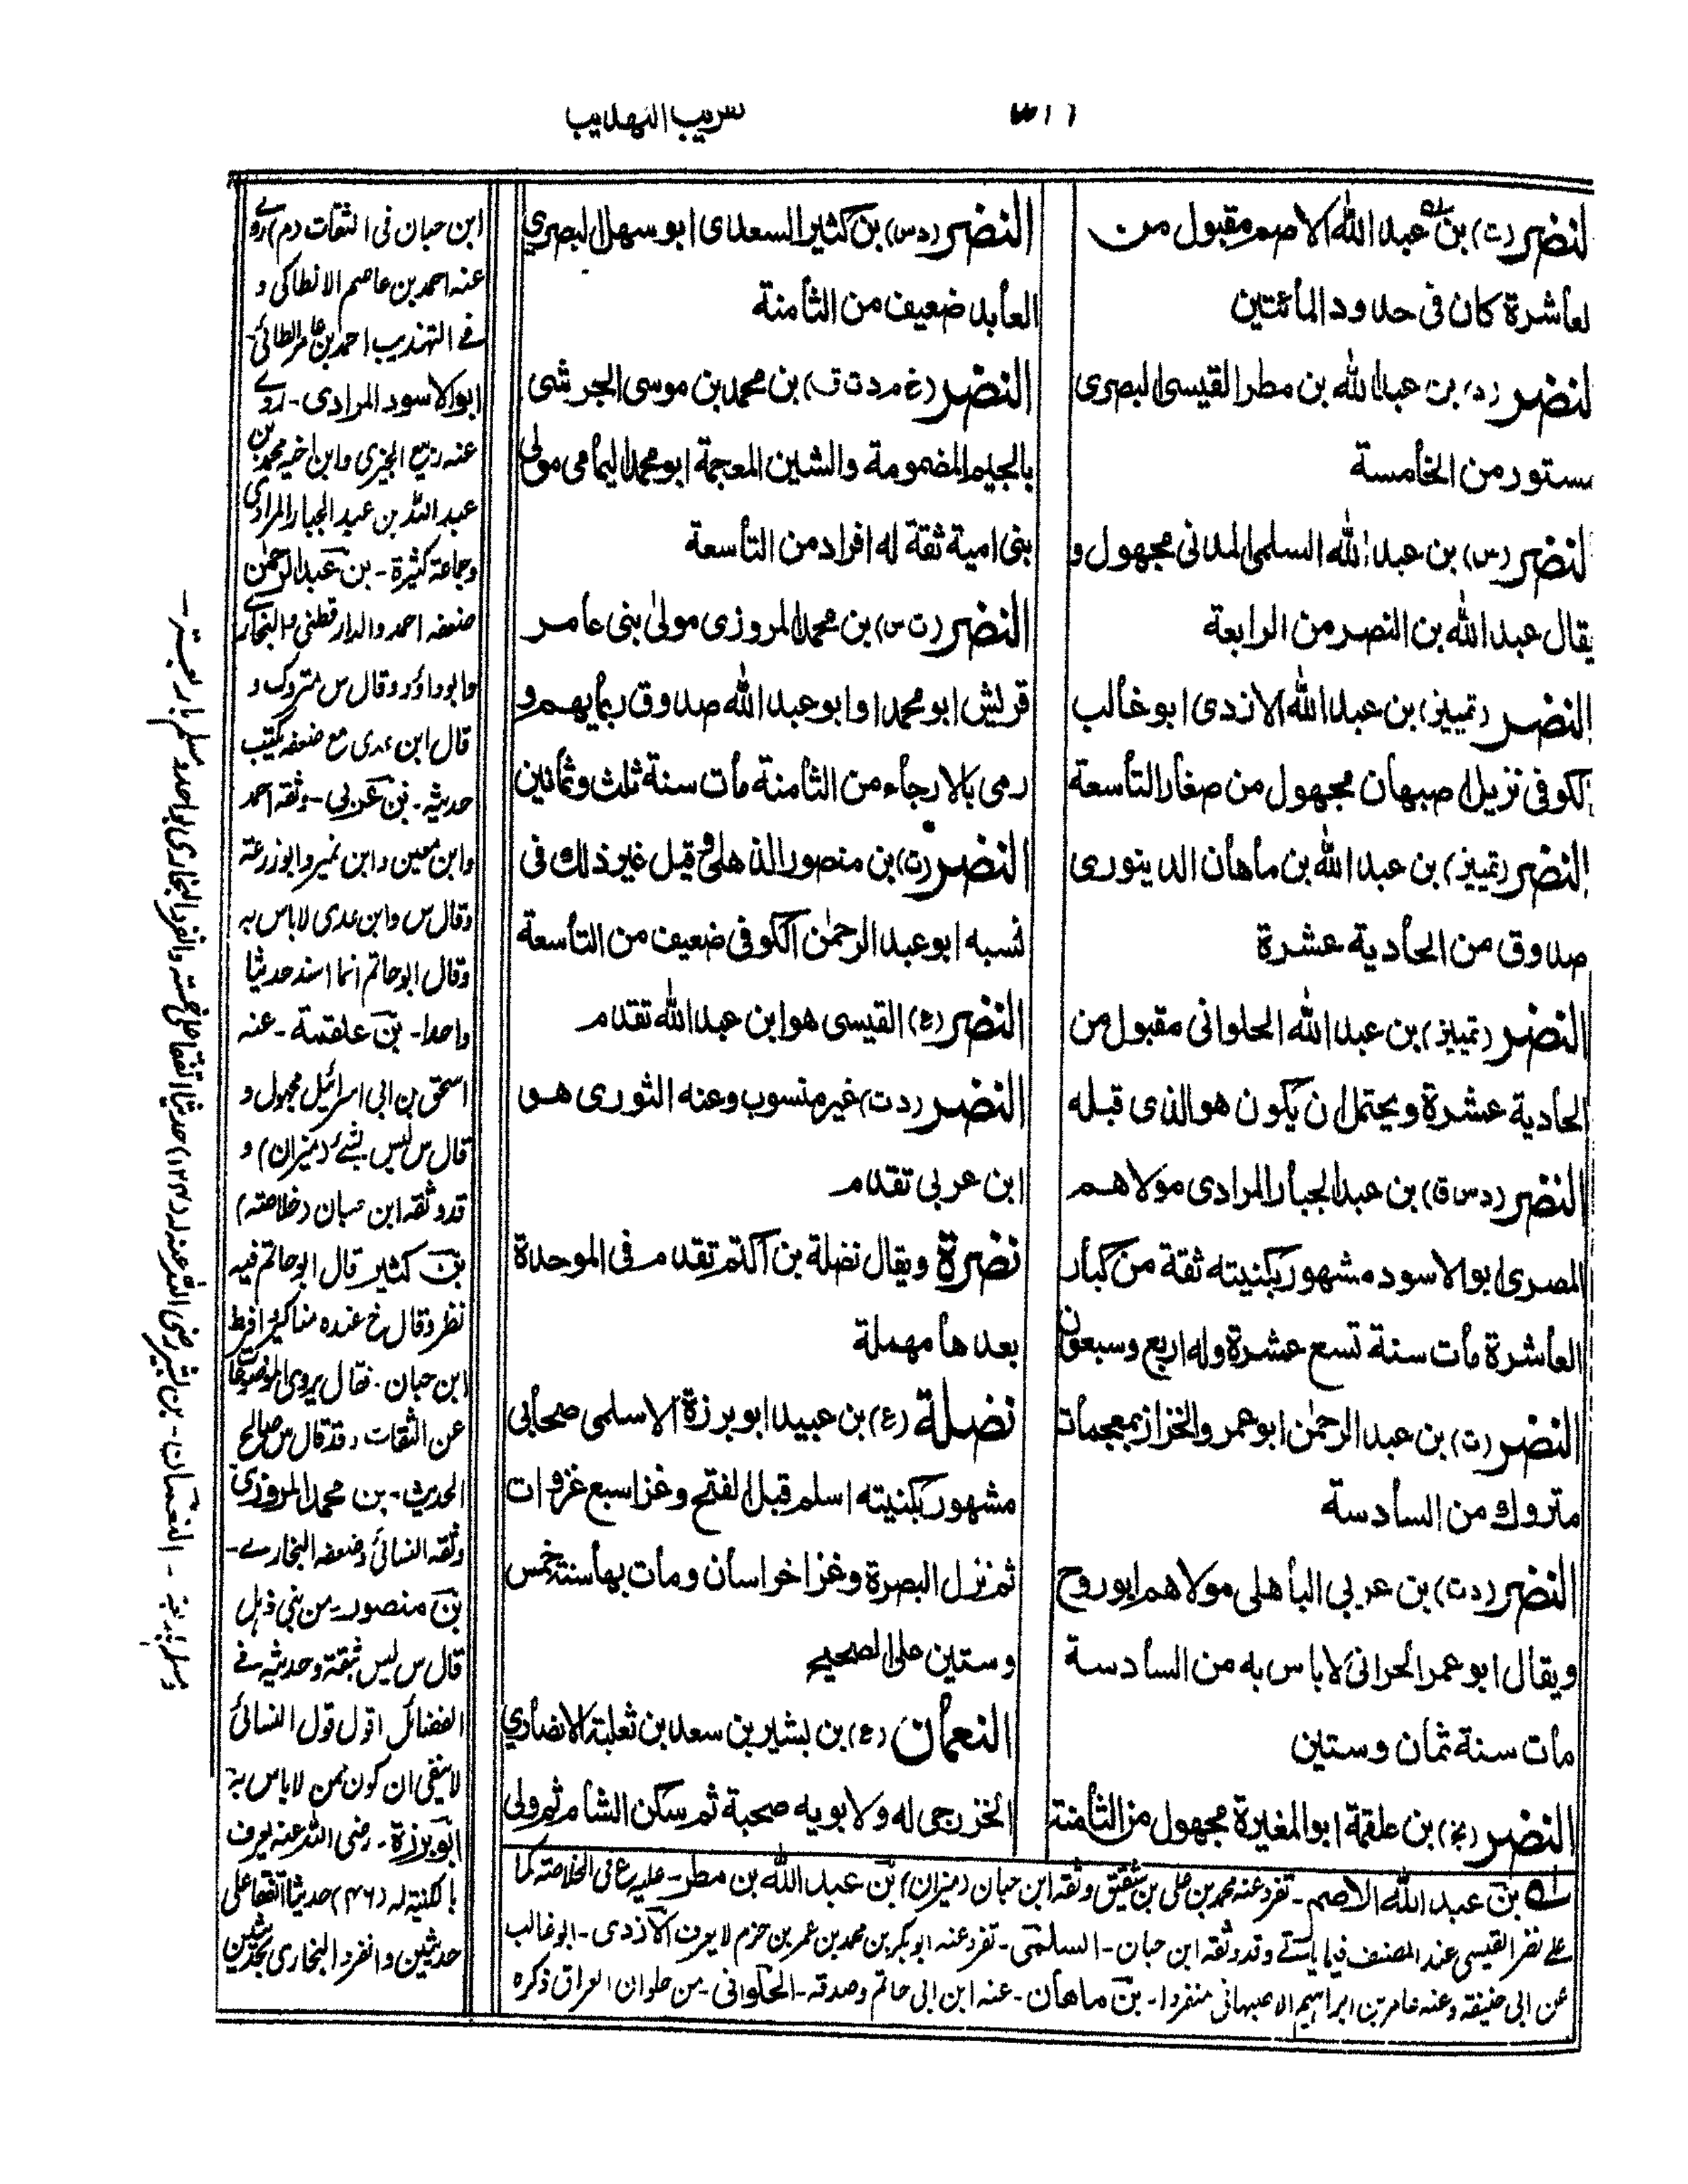 النضر (ت) بن عبد الله الاصم مقبول من
لعاشرة كان فى حدود المائتين
لنضر (د) بن عبد الله بن مطر القيسى البصرى
مستور من الخامسة
لنضر (س) بن عبد الله السلمى المدنى مجهول و
يقال عبد الله بن النضر من الرابعة
النضر (تمييز) بن عبد الله الازدى ابو غالب
الكوفى نزيل اصبهان مجهول من صغار التاسعة
النضر (تمييز) بن عبد الله بن ماهان الدينورى
صدوق من الحادية عشرة
النضر (تمييز) بن عبد الله الحلوانى مقبول من
لحادية عشرة ويحتمل ان يكون هو الذى قبله
النضر (د س ق) بن عبد الجبار المرادى مولاهم
المصرى ابو الاسود مشهور بكنيته ثقة من كبار
العاشرة مات سنة تسع عشرة وله اربع وسبعون
النضر (ت) بن عبد الرحمٰن ابو عمر والخزاز بمعجمات
متروك من السادسة
النضر (د ت) بن عربي الباهلى مولاهم ابو روح
ويقال ابو عمر الحرانى لا باس به من السادسة
مات سنة ثمان وستين
النضر (بخ) بن علقمة ابو المغيرة مجهول من الثامنة
النضر (د س) بن كثير السعدى ابو سهل البصري
العابد ضعيف من الثامنة
النضر (خ م د ت ق) بن محمد بن موسى الجرشى
بالجيم المضمومة والشين المعجمة ابو محمد اليمامى مولى
بنى امية ثقة له افراد من التاسعة
النضر (ت س) بن محمد المروزى مولىٰ بنى عامر
قريش ابو محمد او ابو عبد الله صدوق ربما يهم و
رمى بالارجاء من الثامنة مات سنة ثلث وثمانين
النضر (ت) بن منصور الذهلى وقيل غير ذالك فى
نسبه ابو عبد الرحمٰن الكوفى ضعيف من التاسعة
النضر (ع) القيسى هو ابن عبد الله تقدم
النضر (د ت) غير منسوب وعنه الثورى هو
ابن عربى تقدم
نضرة ويقال نضلة بن اكتم تقدم فى الموحدة
بعدها مهملة
نضلة (ع) بن عبيد ابو برزة الاسلمى صحابى
مشهور بكنيته اسلم قبل الفتح وغزا سبع غزوات
ثم نزل البصرة وغزا خراسان ومات بها سنة خمس
وستين على الصحيح
النعمان (ع) بن بشير بن سعد بن ثعلبة الانصاري
الخزرجى له ولابويه صحبة ثم سكن الشام ثم ولى
ابن حبان فى الثقات (م) روے
عنه احمد بن عاصم الانطاكى و
فے التهذيب احمد بن عامر الطائى-
ابو الاسود المرادى - روے
عنه ربيع الجيزى وابن اخيه محمد بن
عبد الله بن عبد الجبار المرادى
وجماعة كثيرة - بن عبد الرحمٰن
ضعفه احمد والدارقطنى والبخارى
وابوداؤد وقال س متروك و
قال ابن عدى مع ضعفه يكتب
حديثه - بن عربى - وثقه احمد
وابن معين وابن نمير وابوزرعة
وقال س وابن عدى لا باس به
وقال ابو حاتم انما اسند حديثا
واحدا - بن علقمة - عنه
اسحق بن ابى اسرائيل مجهول و
قال س ليس بشئ (ميزان) و
قد وثقه ابن حبان (خلاصة)
بن كثير قال ابو حاتم فيه
نظر وقال خ عنده مناكير افرط
ابن حبان - فقال يروى الموضوعات
عن الثقات وقد قال س صالح
الحديث - بن محمد المروزى
وثقه النسائى وضعفه البخارے-
بن منصور - من بنى ذهل
قال س ليس بثقة وحديثه فے
الفضائل اقول قول النسائى
لا ينفى ان كون ممن لا باس به
ابو برزة - رضى الله عنه يعرف
بالكنية له (٤٦) حديثا اتفقا على
حديثين وانفرد البخارى بحديثين
ومسلم باربعة - النعمان - بن بشير رضى الله عنه له (١٢٤) حديثا اتفقا على خمسة وانفرد البخارى بواحد ومسلم باربعة -
بن عبد الله الاصم - تفرد عنه محمد بن على بن شقيق وثقه ابن حبان (ميزان) بن عبد الله بن مطر - عليه ع فى الخلاصة كما
على نضر القيسى عند المصنف فيما ياتے وقد وثقه ابن حبان - السلمى - تفرد عنه ابو بكر بن محمد بن عمر بن حزم لا يعرف الازدى - ابو غالب
عن ابى حنيفة وعنه عامر بن ابراهيم الاصبهانى منفردا - بن ماهان - عنه ابن ابى حاتم وصدقه - الحلوانى - من حلوان العراق ذكره